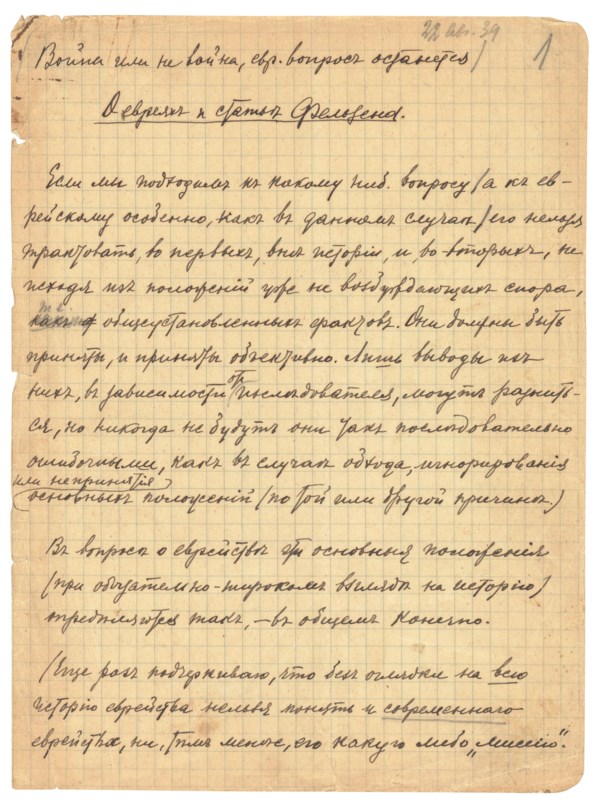 22 Авг. 39
1
Война или не война, евр. вопросъ останется)
О евреяхъ и статьѣ Фельзена.
Если мы подходимъ къ какому ниб. вопросу (а къ ев-
рейскому особенно, какъ въ данномъ случаѣ) его нельзя
трактовать, во первыхъ, внѣ исторіи, и во вторыхъ, не
исходя изъ положеній уже не возбуждающихъ спора,
т. е. общеустановленныхъ фактовъ. Они должны быть
приняты, и приняты объективно. Лишь выводы изъ
нихъ, въ зависимости отъ изслѣдователя, могутъ разнить-
ся, но никогда не будутъ они такъ послѣдовательно
ошибочными, какъ въ случаѣ обхода, игнорированія
или непринятія
основныхъ положеній (по той или другой причинѣ.)
Въ вопросѣ о еврействѣ эти основныя положенія
(при обязательно-широкомъ взглядѣ на исторію)
опредѣляются такъ, – въ общемъ конечно.
(Еще разъ подчеркиваю, что безъ оглядки на всю
исторію еврейства нельзя понять и современнаго
еврейства, ни, тѣмъ менѣе, его какую либо „миссію".